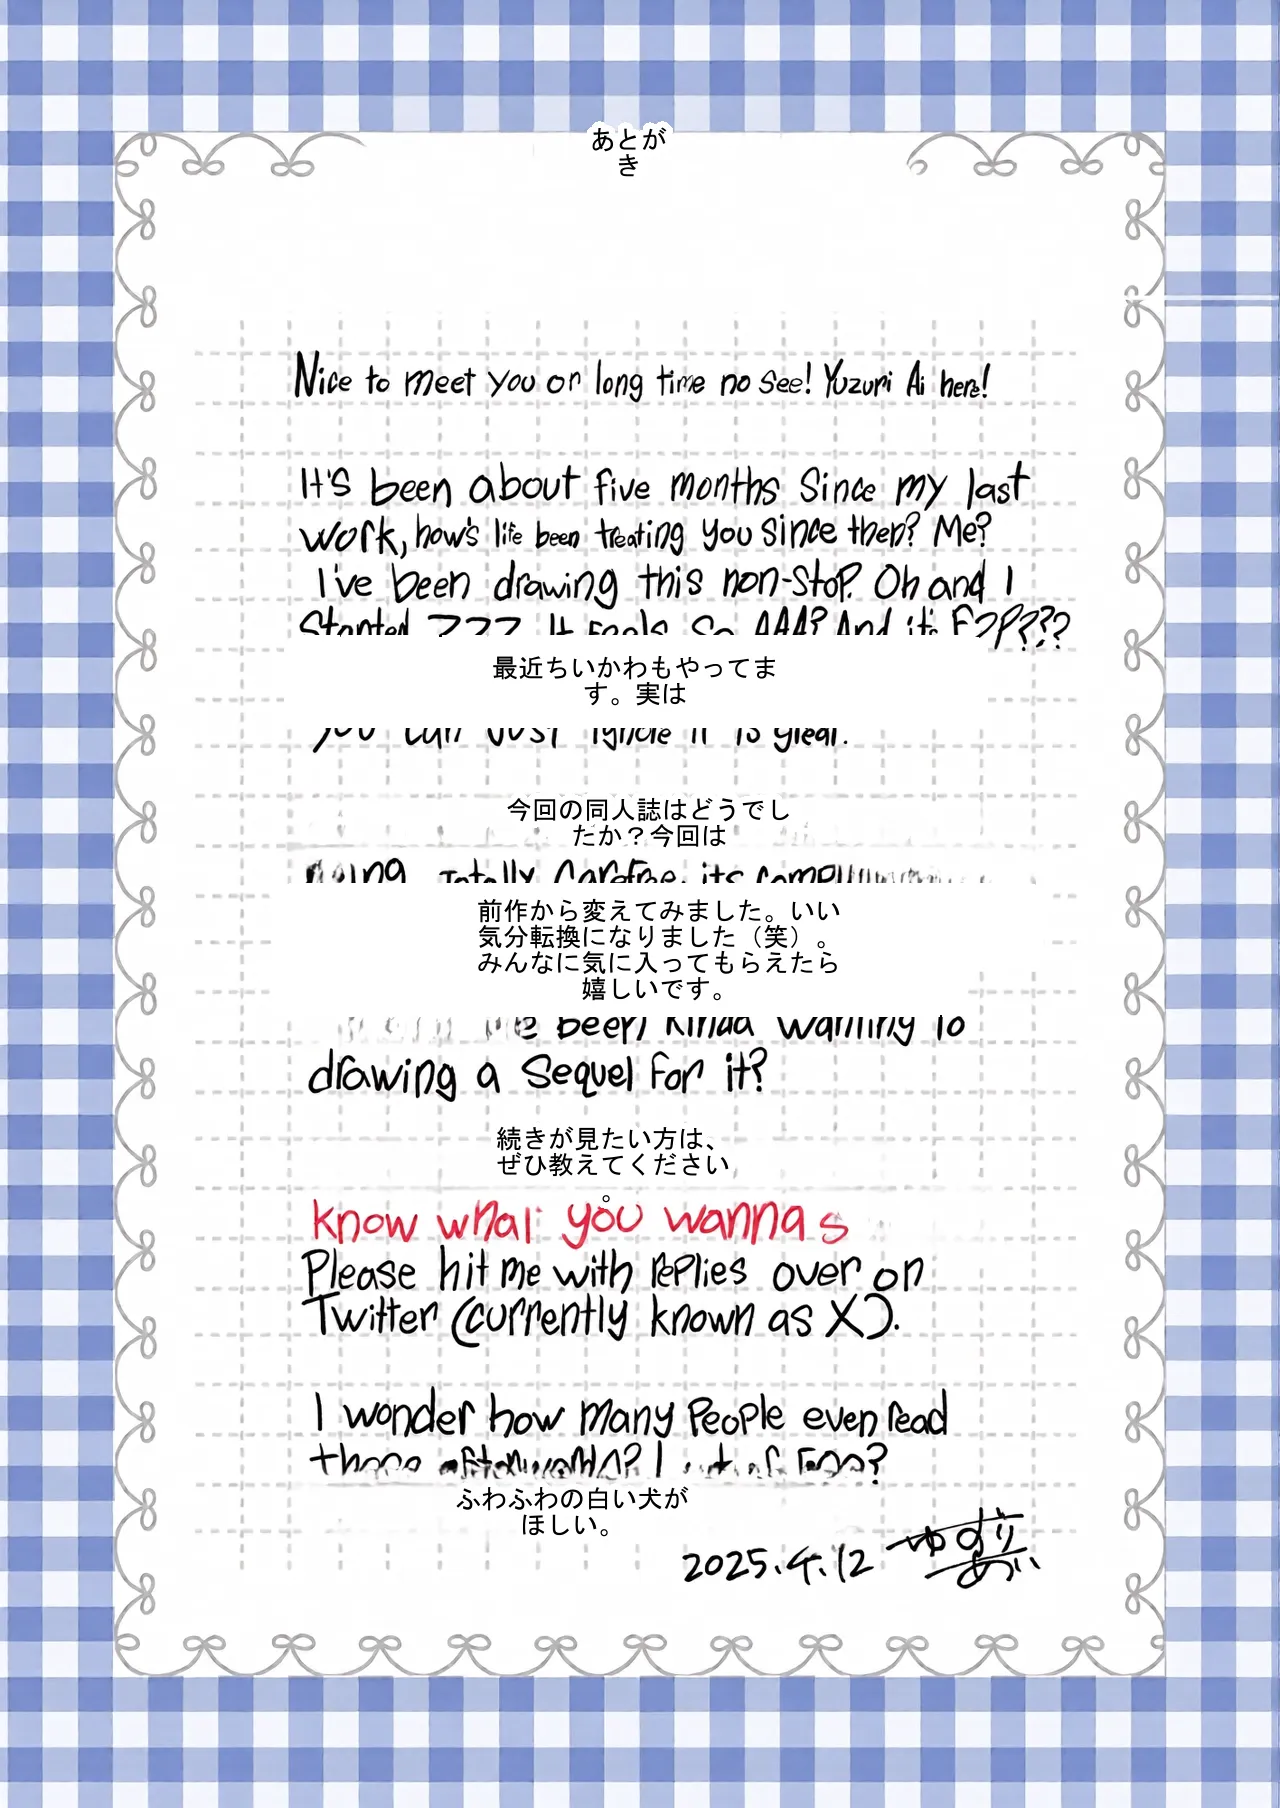 あとが
き
Nice to meet you or long time no see! Yuzuri Ai here!
It's been about five months since my last
work, how's life been treating you since then? Me?
I've been drawing this non-stop. Oh and I
Started ZZZ. It feels so AAA? And it's F2P???
最近ちいかわもやってま
す。実は
you can just ignore it is great.
今回の同人誌はどうでし
たか？今回は
totally carefree, its
前作から変えてみました。いい
気分転換になりました（笑）。
みんなに気に入ってもらえたら
嬉しいです。
been kinda wanting to
drawing a sequel for it?
続きが見たい方は、
ぜひ教えてください
。
know what you wanna s
Please hit me with replies over on
Twitter (currently known as X).
I wonder how many people even read
these afterwords? 1 out of
ふわふわの白い犬が
ほしい。
2025.4.12 ゆずり
あい